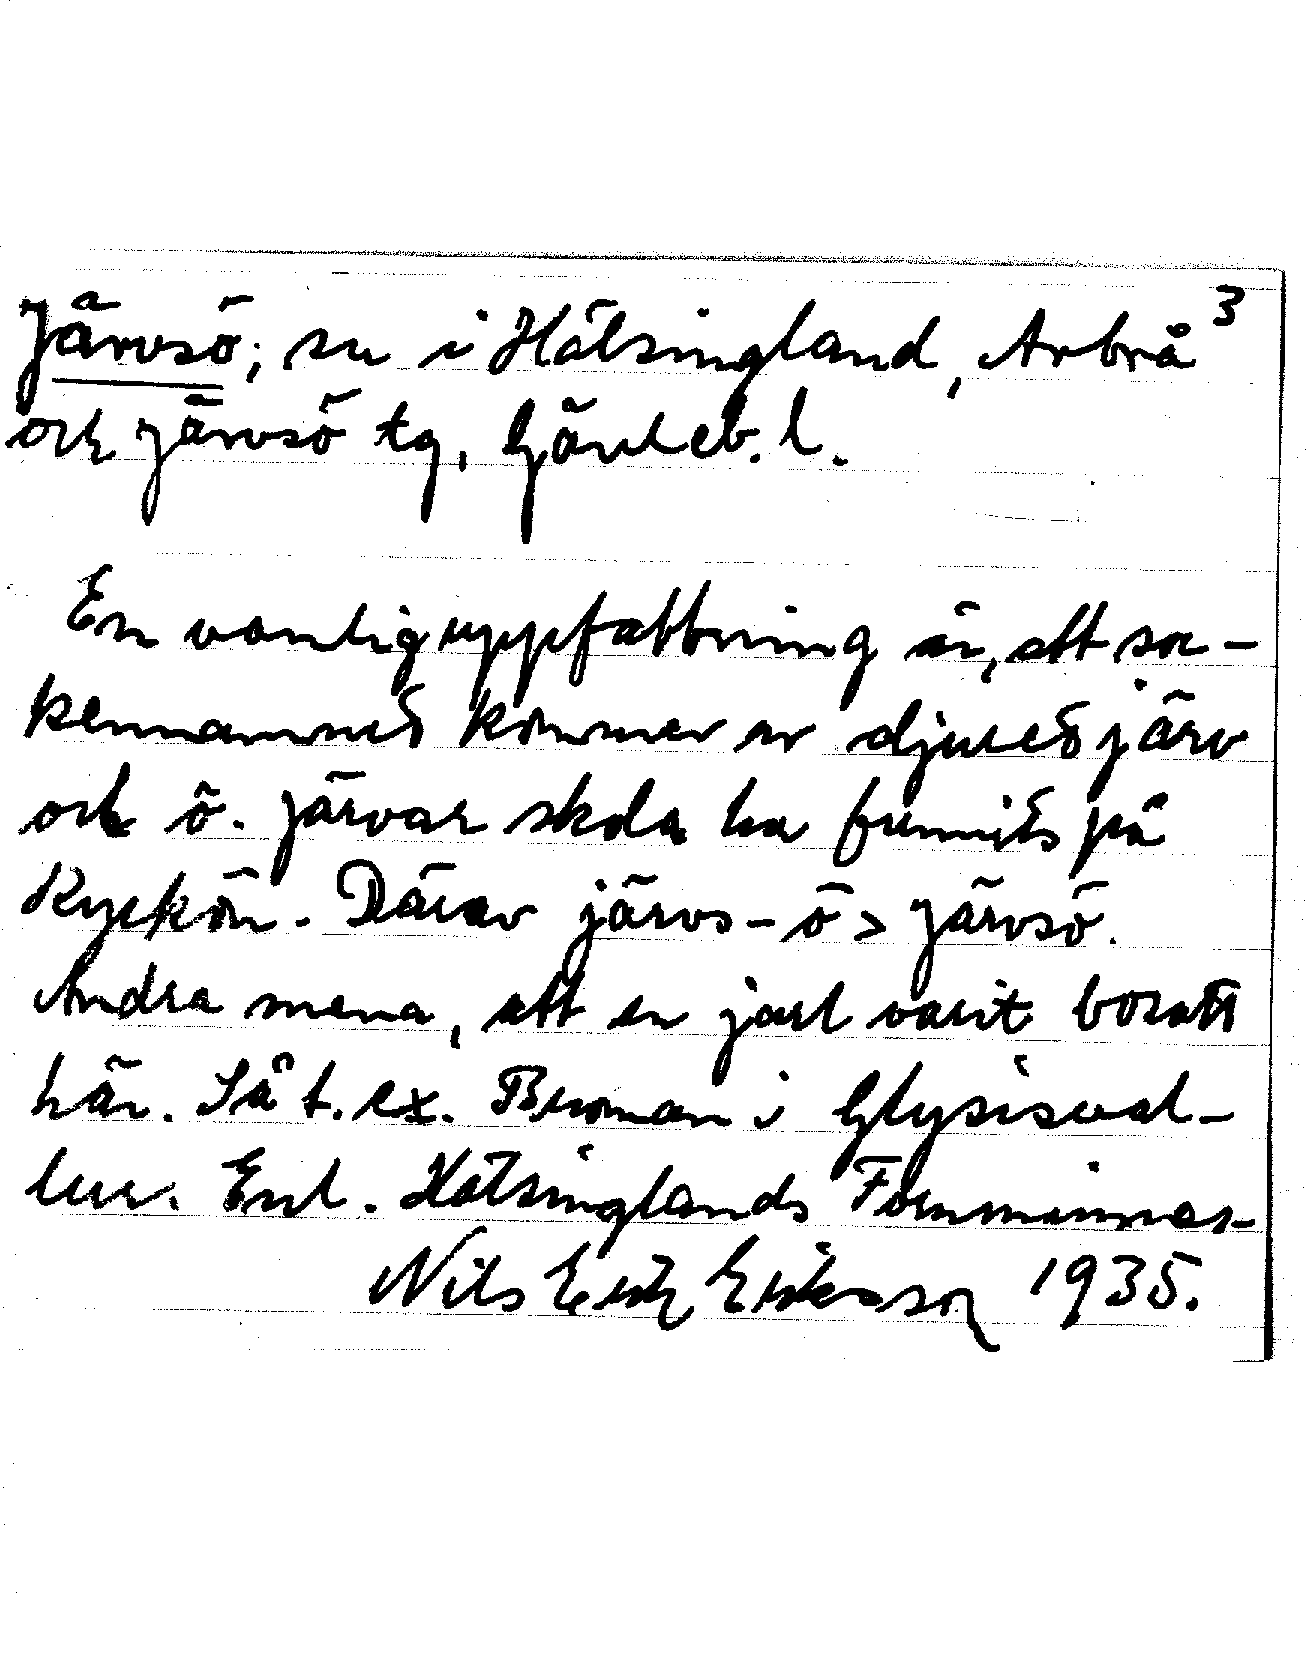 3
Järvsö; sn i Hälsingland, Arbrå
och Järvsö tg, Gävleb. l.
En vanlig uppfattning är, att soc-
kennamnet kommer av djuret järv
och ö. Järvar skola ha funnits på
Kyrkön. Därav järvs-ö > Järvsö.
Andra mena, att en jarl varit bosatt
här. Så t. ex. Broman i Glysisval-
lur. Enl. Hälsinglands Fornminnes-
Nils Erik Eriksson 1935.